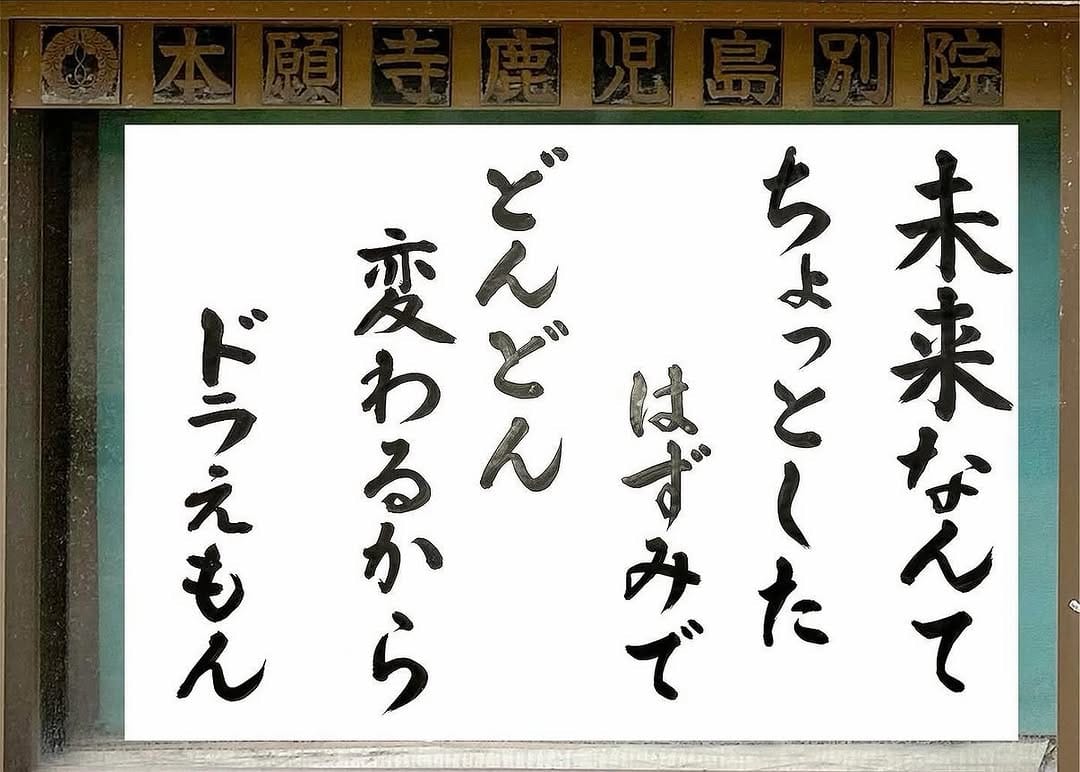 本願寺鹿児島別院
未来なんて
ちょっとした
はずみで
どんどん
変わるから
ドラえもん